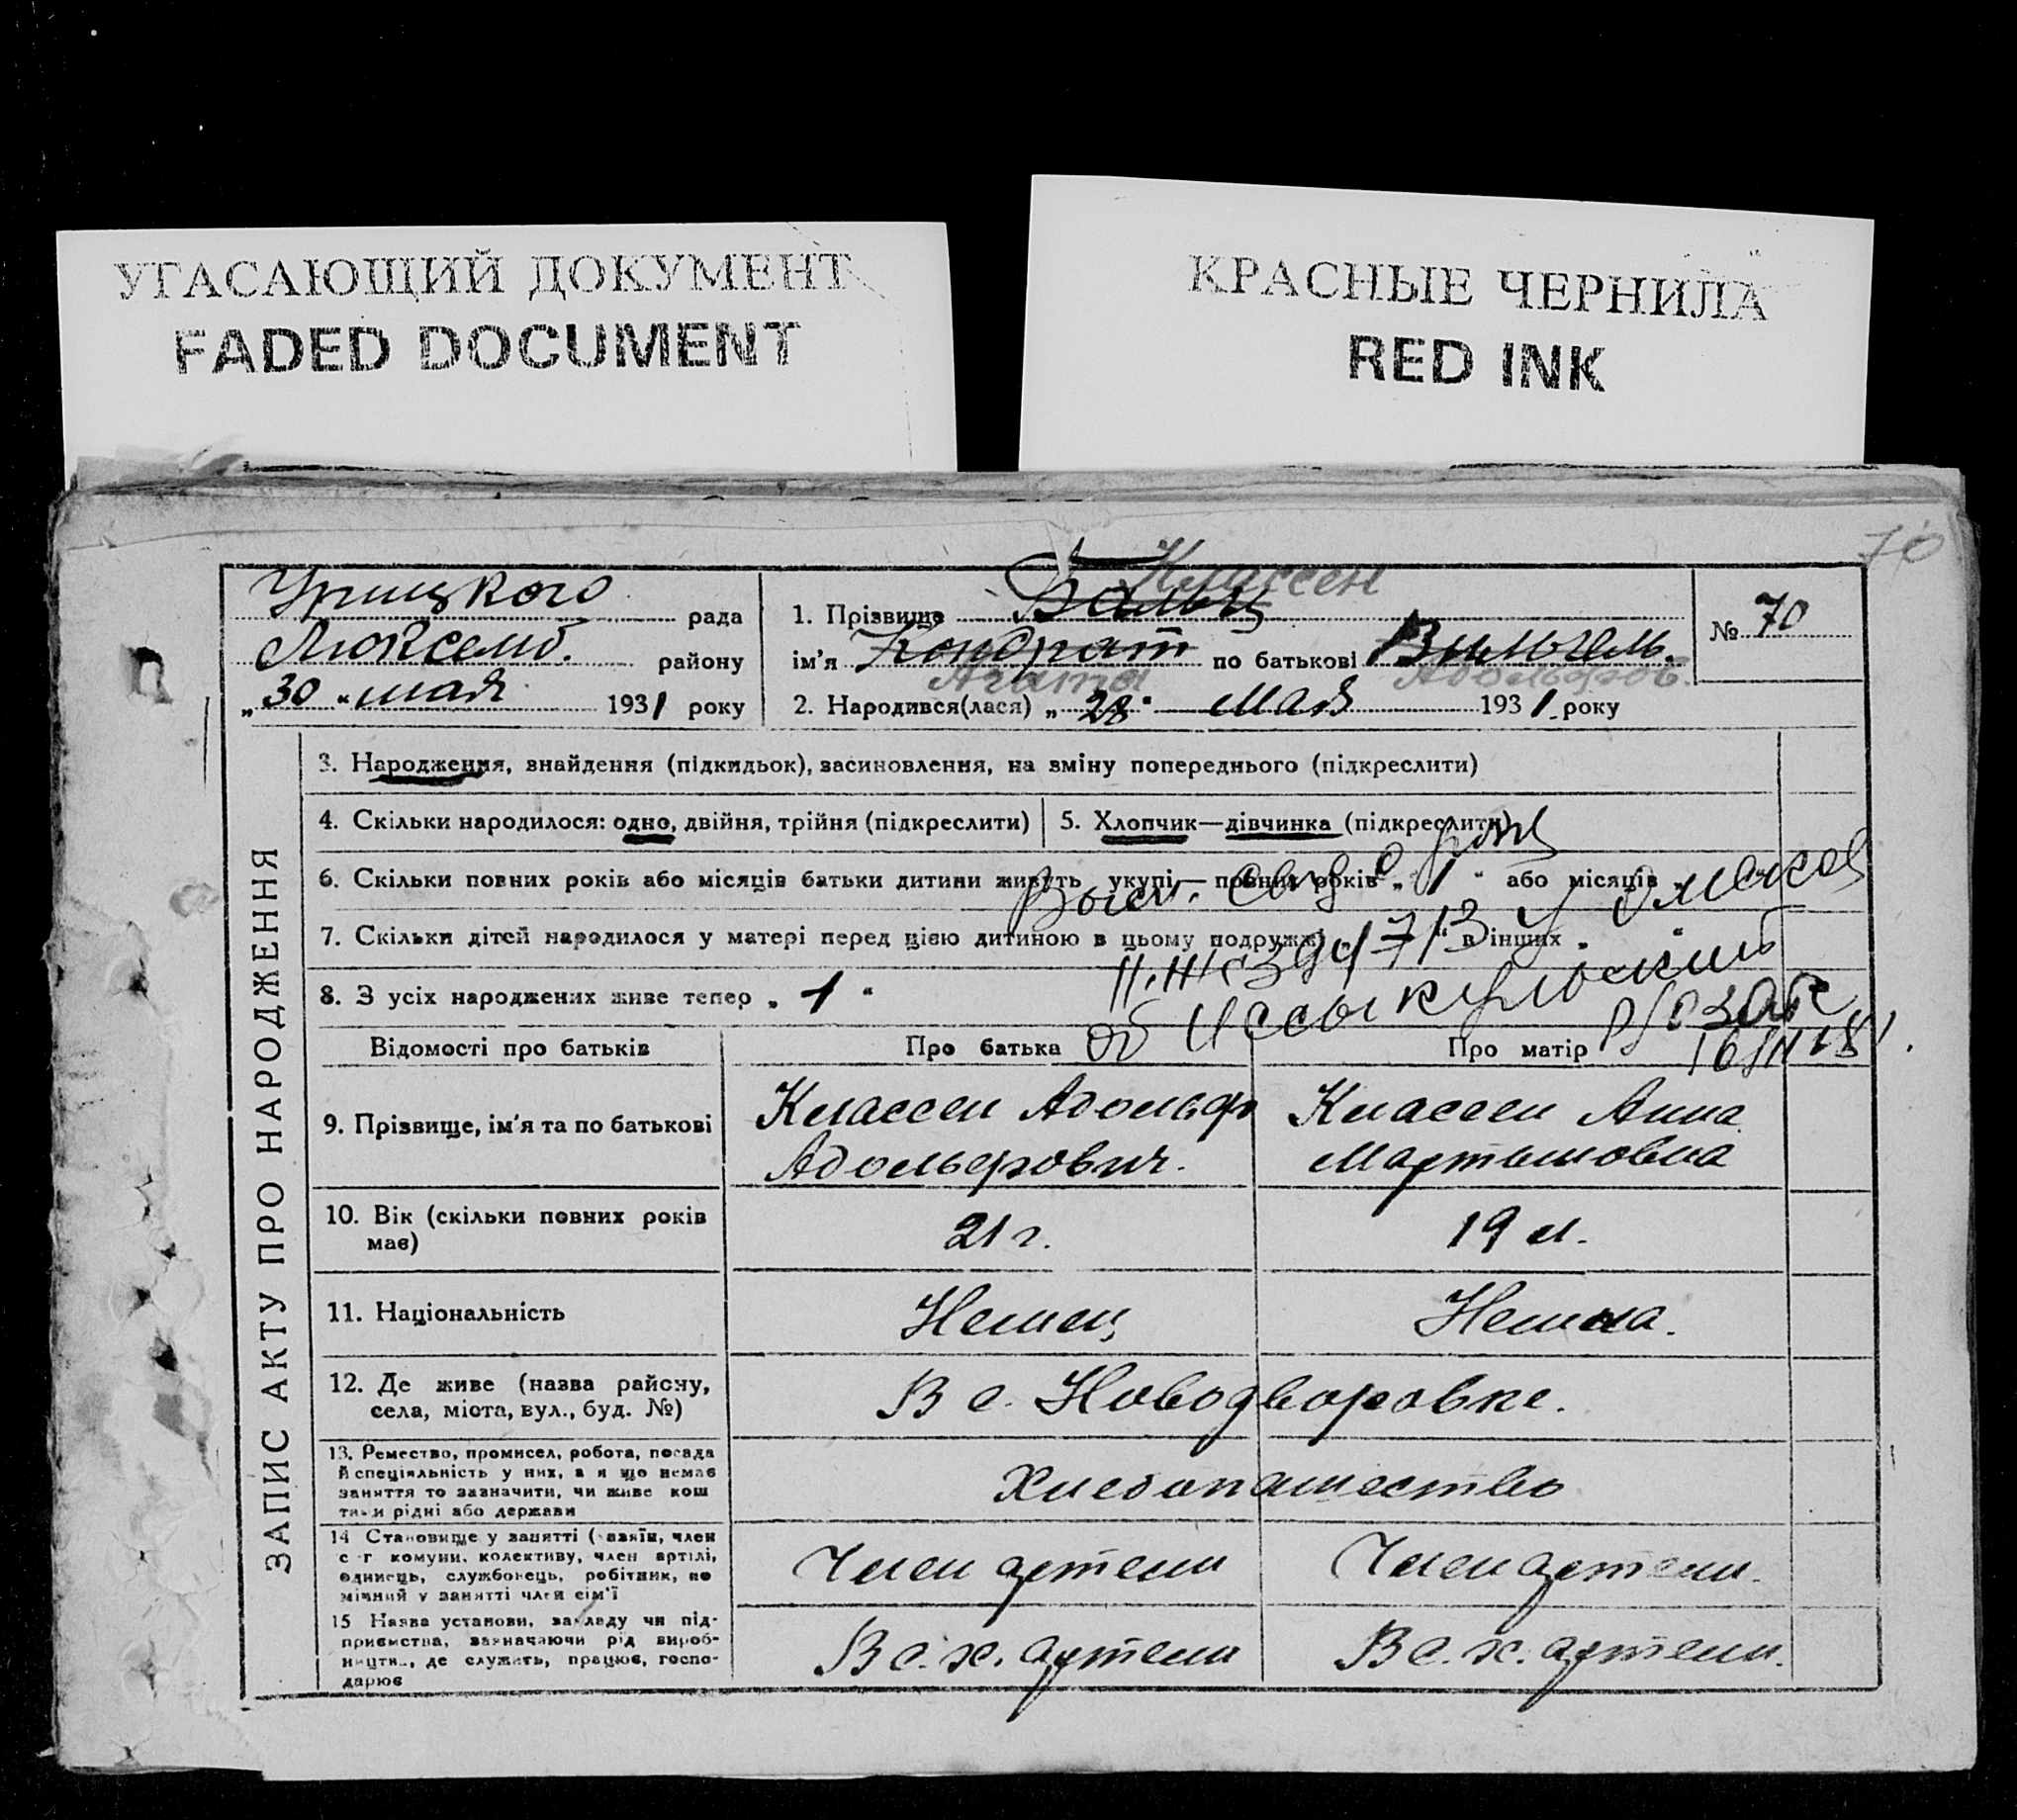 УГАСАЮЩИЙ ДОКУМЕНТ
FADED DOCUMENT
КРАСНЫЕ ЧЕРНИЛА
RED INK
70
Урицкого рада
Люксемб. району
„30 " мая 1931 року
Классен
1. Прізвище Бальц
ім'я Кондрат по батькові Вильгельм.
Агата Адольфов.
2. Народився(лася) „ 28 " мая 1931 року
№ 70
ЗАПИС АКТУ ПРО НАРОДЖЕННЯ
3. Народження, знайдення (підкидьок), засиновлення, на зміну попереднього (підкреслити)
4. Скільки народилося: одно, двійня, трійня (підкреслити)
5. Хлопчик—дівчинка (підкреслити)
6. Скільки повних років або місяців батьки дитини живуть укупі— повних років „ 1 " або місяців
7. Скільки дітей народилося у матері перед цією дитиною в цьому подружжі в інших
8. З усіх народжених живе тепер „ 1 "
Выст. свид. о рожд
Иссыккульский
Відомості про батьків
Про батька
Про матір
9. Прізвище, ім'я та по батькові
Классен Адольф
Адольфович.
Классен Анна
Мартыновна
10. Вік (скільки повних років
має)
21 г.
19 л.
11. Національність
Немец
Немка.
12. Де живе (назва району,
села, міста, вул., буд. №)
В с. Новодворовке.
13. Ремество, промисел, робота, посада
й спеціяльність у них, а я що немає
заняття то зазначити, чи живе кош
тами рідні або держави
Хлебопашество
14 Становище у занятті (хазяїн, член
с г комуни, колективу, член артілі,
одинець, службовець, робітник, по
мічний у занятті член сім'ї
Член артели
Член артели.
15 Назва установи, закладу чи під-
приємства, зазначаючи рід вироб-
ництва, де служить, працює, госпо-
дарює
В с. х. артели
В с. х. артели.